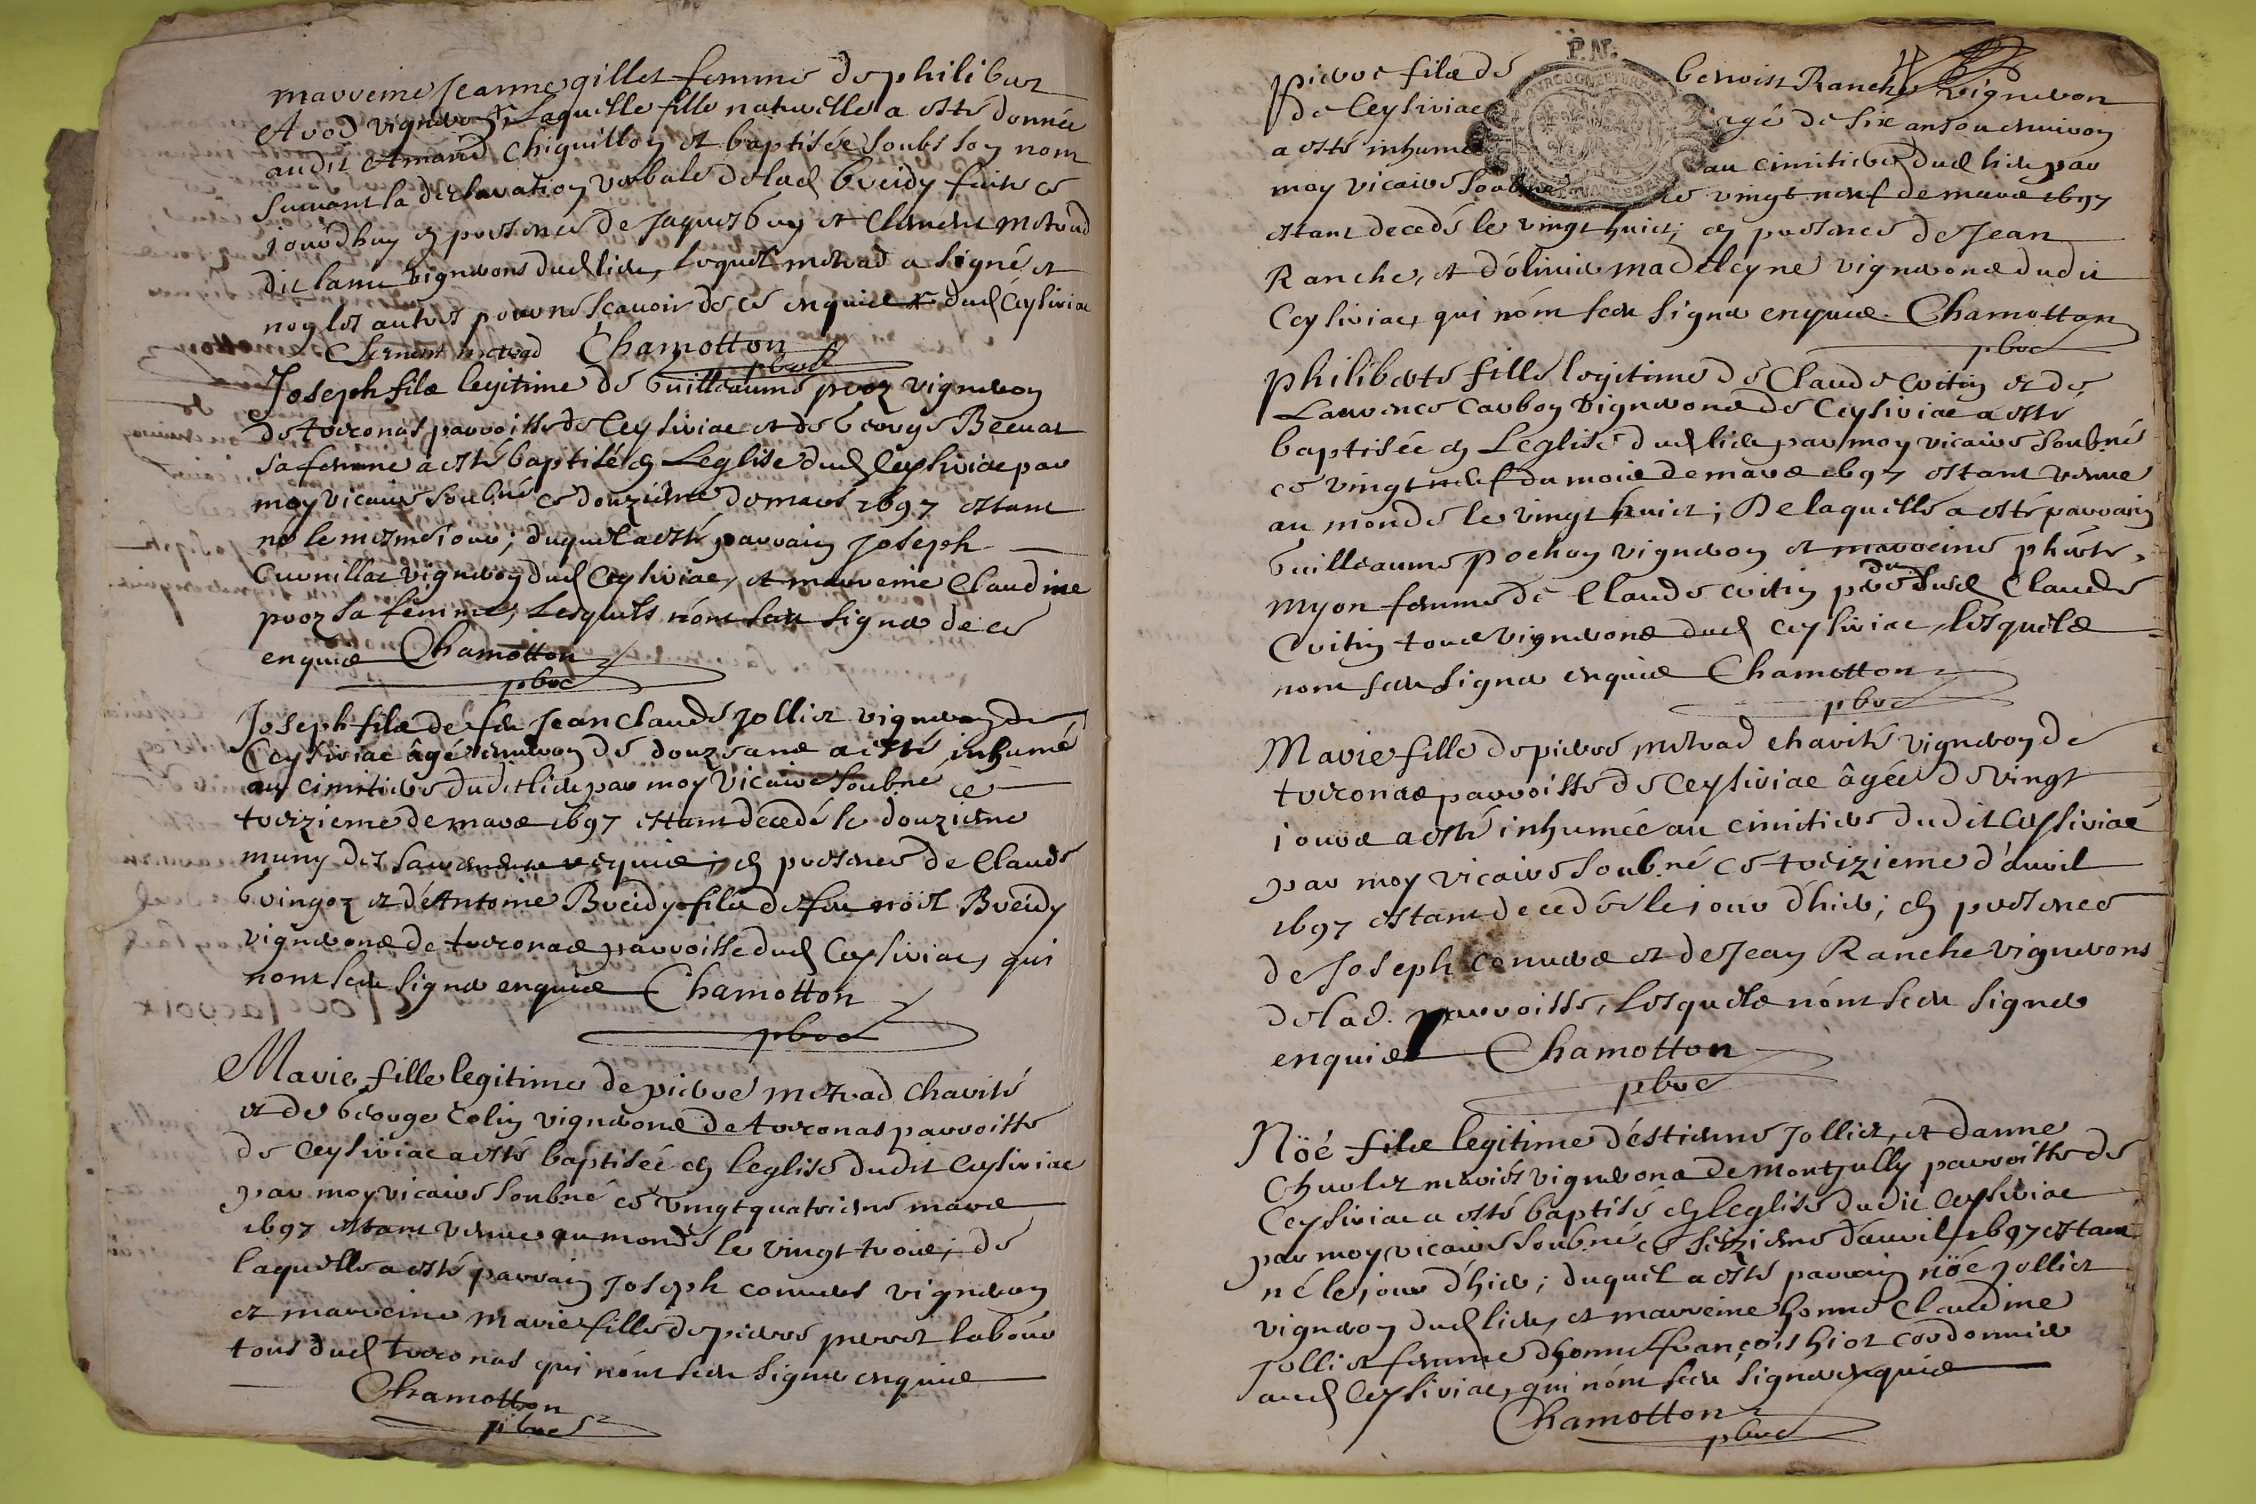 marreine Jeanne gillet femme de philibert
vigneron laquelle fille naturelle a esté donnée
audit Amand Chiquillon et baptisée soubs son nom
suivant la declaration verbale de lad breidy faite ce
jourdhuy en presence de Jaques buy et Clement metrad
dit lami vignerons dud lieu, lequel metrad a signé et
non les autres pour ne sçavoir de ce enquis dud Ceysiriac
Clement metrad Chamotton
pbre
Joseph fils legitime de Guilleaume proz vigneron
de treconas parroisse de Ceysiriac et de George Becuat
sa femme a esté baptisé en Leglise dud Ceysiriac par
moy vicaire soubné ce douzieme de mars 1697 estant
né le mesme jour; duquel a esté parrain Joseph
Cuvnillat vigneron dud Ceysiriac, et marreine Claudine
proz sa femme, lesquels n'ont sceu signer de ce
enquis Chamotton
pbre
Joseph fils de feu Jean Claude Jollier vigneron de
Ceysiriac âgé environ de douze ans a esté inhumé
au cimitiere dudit lieu par moy vicaire soubné ce
treizieme de mars 1697 estant decedé le douzieme
muny des sacremens requis; en presence de Claude
bringoz et d'Antoine Breidy fils de feu noël Breidy
vignerons de treconas parroisse dud Ceysiriac, qui
nont sceu signer enquis Chamotton
pbre
Marie fille legitime de pierre metrad Charité
et de George Colin vignerons de treconas parroisse
de Ceysiriac a esté baptisée en leglise dudit Ceysiriac
par moy vicaire soubné ce vingtquatrieme mars
1697 estant venue au monde le vingt trois; de
laquelle a esté parrain Joseph convers vigneron
et marreine marie fille de pierre perret labour
tous dud treconas qui nont sceu signer enquis
Chamotton
pbre
P.N.
pierre fils de benoist Ranche vigneron
de Ceysiriac agé de six ans ou environ
a esté inhumé au cimitiere dud lieu par
moy vicaire soubné ce vingt neuf de mars 1697
estant decedé le vingt huict; en presence de Jean
Ranche, et d'olivier madeleyne vignerons dudit
Ceysiriac, qui nont sceu signer enquis. Chamotton
pbre
philiberte fille legitime de Claude Coitin et de
Laurence Carbon vignerons de Ceysiriac a esté
baptisée en Leglise dud lieu par moy vicaire soubné
ce vingt neuf du mois de mars 1697 estant venue
au monde le vingt huict; De laquelle a esté parrain
Guilleaume pochon vigneron et marreine phirte
myon femme de Claude coitin pere dud Claude
Coitin tous vignerons dud Ceysiriac, lesquels
nont sceu signer enquis Chamotton
pbre
Marie fille de pierre metrad charité vigneron de
treconas parroisse de Ceysiriac âgée de vingt
jours a esté inhumée au cimitiere dudit Ceysiriac
par moy vicaire soubné ce treizieme d'avril
1697 estant decedée le jour d'hier; en presence
de Joseph convers et de Jean Ranche vignerons
de lad. parroisse, lesquels n'ont sceu signer
enquis Chamotton
pbre
Nöé fils legitime d'estienne Jollier, et danne
Chulet mariés vignerons de Montjully parroisse de
Ceysiriac a esté baptisé en leglise dudit Ceysiriac
par moy vicaire soubné ce seizieme d'avril 1697 estant
né le jour d'hier; duquel a esté parrain nöé Jollier
vigneron dud lieu, et marreine honne Claudine
Jollier femme dhonn françois hiot cordonnier
aud Ceysiriac, qui nont sceu signer enquis
Chamotton
pbre